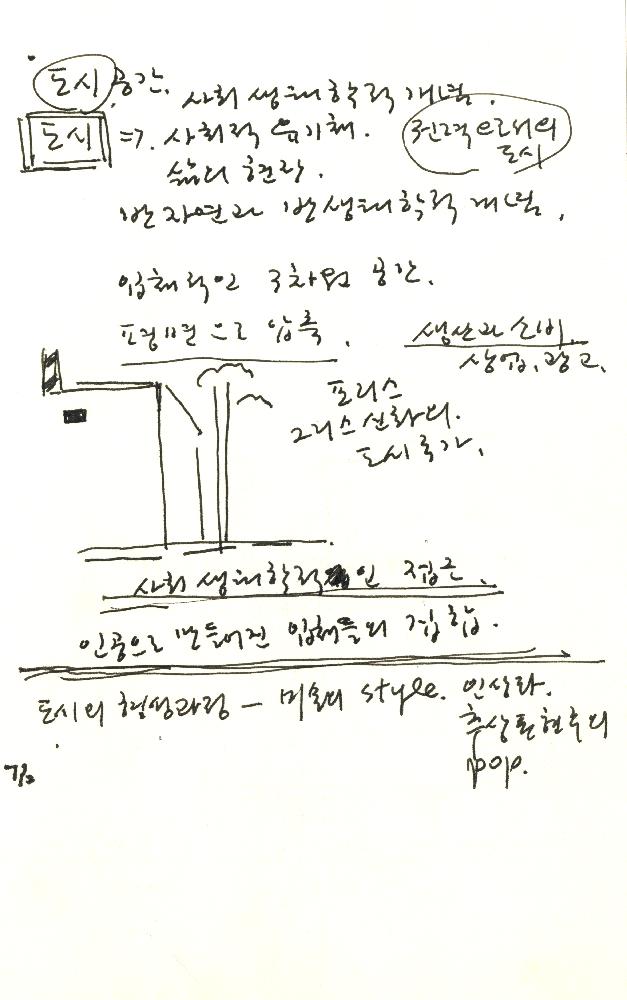 도시 공간.
사회 생태학적 개념.
도시 => 사회적 유기체.
권력 아래의
도시
삶의 현장.
반자연과 반생태학적 개념.
입체적인 3차원 공간.
평면으로 압축.
생산과 소비
상업, 광고.
폴리스
그리스 신화의.
도시국가.
사회 생태학적인 접근.
인공으로 만들어진 입체들의 집합.
도시의 형성과정 — 미술의 style. 인상파.
추상표현주의
pop.